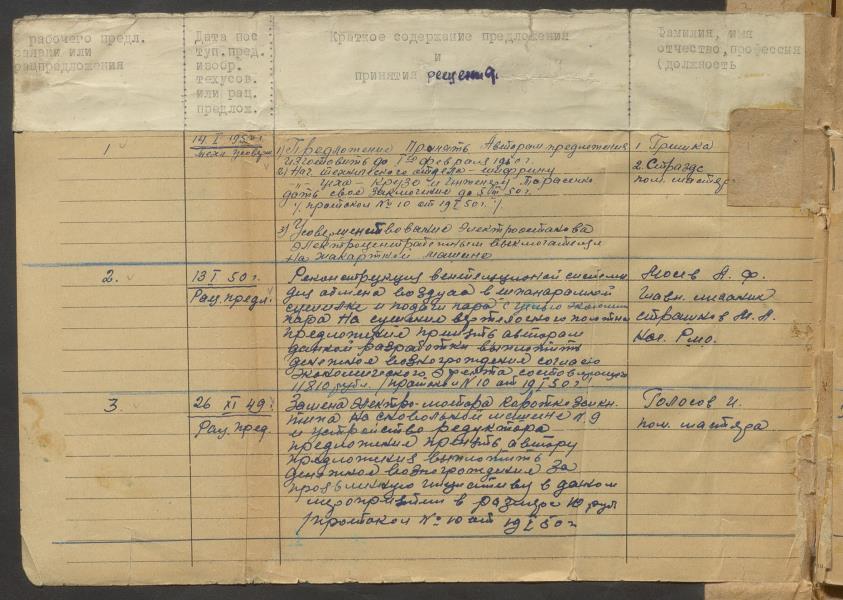 рабочего предл.
заявки или
рацпредложения
Дата пос
туп.пред.
изобр.
техусов.
или рац.
предлож.
Краткое содержание предложения
и
принятия решения
Фамилия, имя
отчество,профессия
(должность
1
14 I 1950 г.
1) Предложение Принять Авторам предложения
изготовить до 1го февраля 1950 г.
2) Нач. технического отдела – Шифрину
Цеха – Крузо и инженеру Тарасенко
дать свое заключение до 50 г.
/. протокол № 10 от 19 I 50 г. /.
3) Усовершенствование электроостанова
выключателя
на жакардной машине
1 Гришка
2. Страздс
пом. мастера
2.
13 I 50 г.
Рац. предл.
Реконструкция вентиляционной системы
для обмена воздуха в
сушилке и подачи пара с целью экономии
пара на сушение полотна
предложение принять авторам
данной разработки выплатить
денежное вознаграждение согласно
экономического эффекта составляющего
11810 рубл. /протокол № 10 от 19 I 50 г.
А. Ф.
Главн. механик
Страшков М. А.
Нач. Рмо.
3
26 XI 49 г.
Рац. пред.
Замена электромотора короткозамкн.
типа на машине № 9
и устройство редуктора
предложение принять автору
предложения выплатить
денежное вознаграждение за
проявленную инициативу в данном
мероприятии в размере руб
/протокол № 10 от 19 I 50 г
Голосов И.
пом. мастера